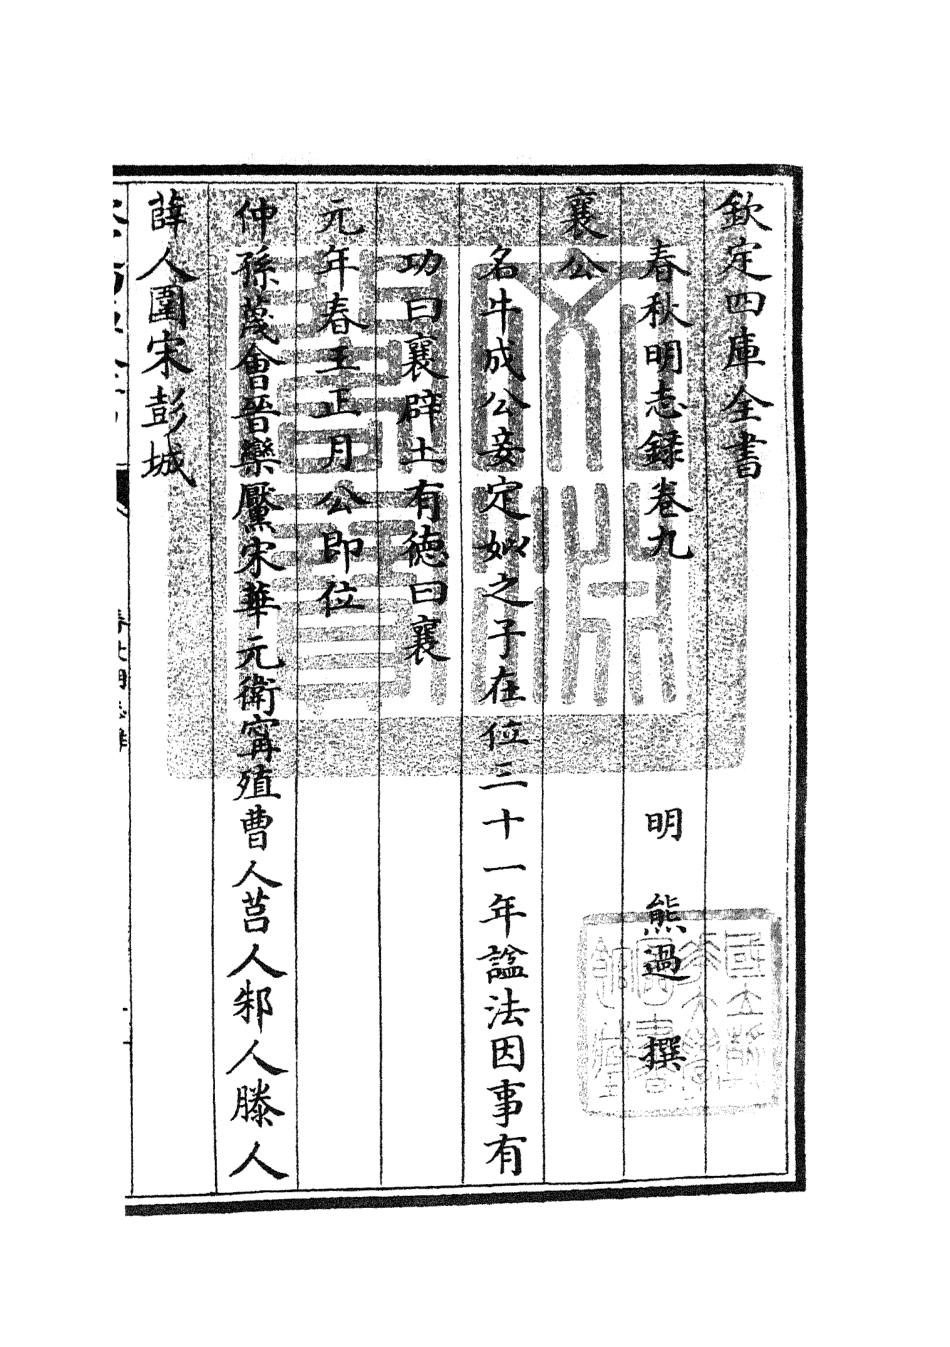 欽定四庫全書
春秋明志録卷九
明 熊過 撰
襄公
名牛成公妾定姒之子在位三十一年諡法因事有
功曰襄辟土有德曰襄
元年春王正月公即位
仲孫蔑會晉欒黶宋華元衛甯殖曹人莒人邾人滕人
薛人圍宋彭城